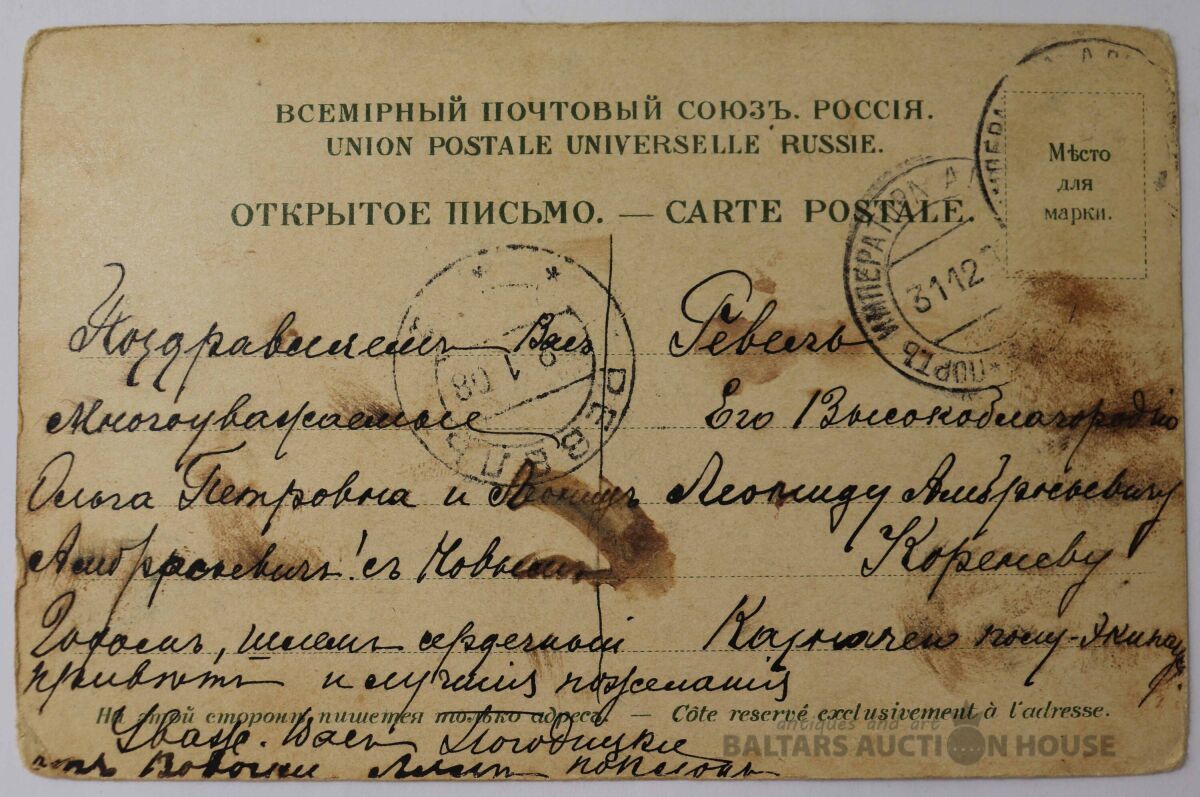 ВСЕМІРНЫЙ ПОЧТОВЫЙ СОЮЗЪ. РОССІЯ.
UNION POSTALE UNIVERSELLE RUSSIE.
ОТКРЫТОЕ ПИСЬМО. — CARTE POSTALE.
Мѣсто
для
марки.
ПОРТЪ ИМПЕРАТОРА АЛ
31 12
РЕВЕЛЬ
9 1 08
Поздравляемъ Васъ
Многоуважаемые
Ольга Петровна и Леонидъ
Амвросьевичъ! съ Новымъ
Годомъ, шлемъ сердечный
привѣтъ и лучшія пожеланія
Уваж. Васъ
отъ Вовочки поклонъ
Ревель
Его Высокоблагородію
Леониду Амвросьевичу
Кореневу
На этой сторонѣ пишется только адресъ. — Côte reservé exclusivement à l'adresse.
antiques and art
BALTARS AUCTION HOUSE